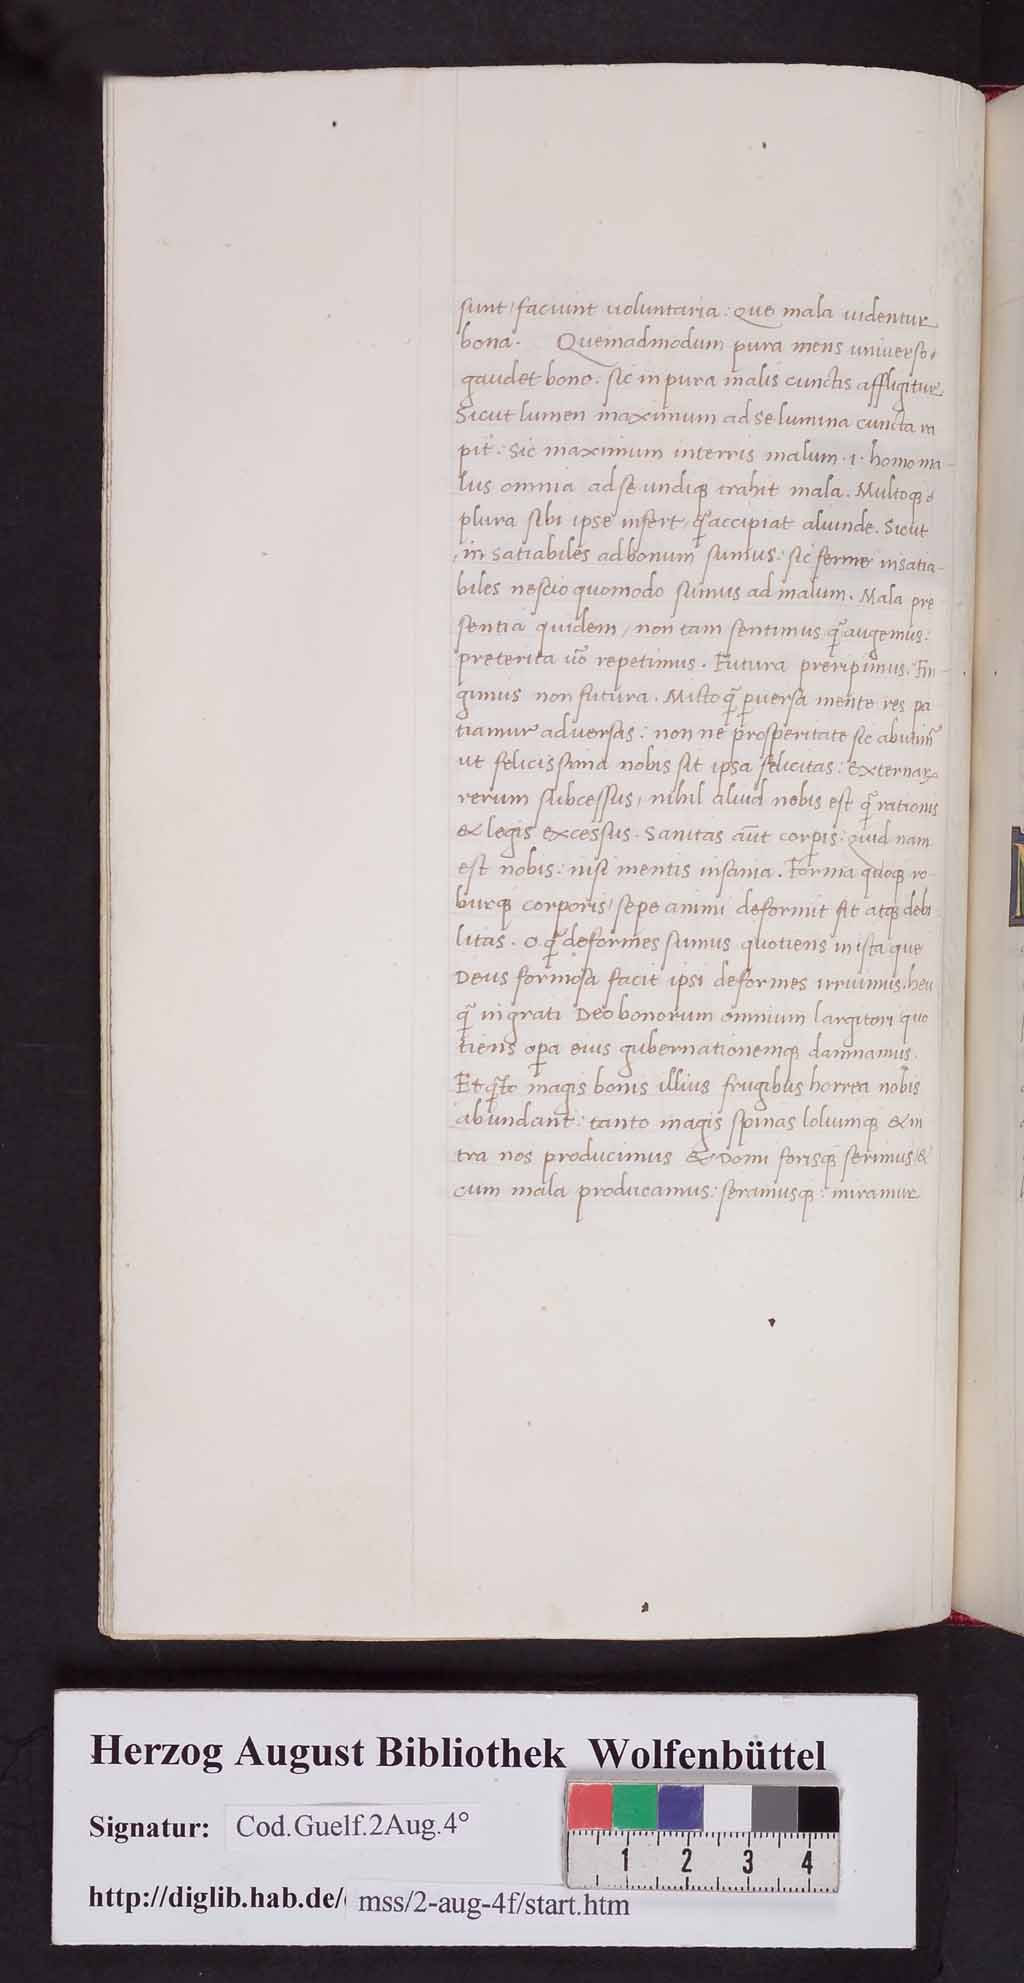 sunt / faciunt uoluntaria : Que mala uidentur
bona. Quemadmodum pura mens uniuerso
gaudet bono : sic inpura malis cunctis affligitur
Sicut lumen maximum ad se lumina cuncta ra
pit : Sic maximum interris malum . i . homo ma-
lus omnia ad se undiq; trahit mala. Multoq;
plura sibi ipse infert / q̃ accipiat aliunde. Sicut
in satiabiles ad bonum sumus : sic ferme insatia-
biles nescio quomodo sumus ad malum. Mala pre
sentia quidem / non tam sentimus q̃ augemus :
preterita uo᷃ repetimus. Futura preripimus. Fin-
gimus non futura. Mltoq̃ ꝑuersa mente res pa
tiamur aduersas : non ne prosperitate sic abutim᷑
ut felicissima nobis sit ipsa felicitas : Externaꝝ
rerum subcessus / nihil aliud nobis est q̃ rationis
& legis excessus. Sanitas aūt corꝑis : quid nam
est nobis : nisi mentis insania. Forma quoq; ro-
burq; corporis / sepe animi deformit fit atq; debi
litas. O q̃ deformes sumus quotiens in ista que
Deus formosa facit ipsi deformes irruimus. heu
q̃ ingrati Deo bonorum omnium largitori quo
tiens oꝑa eius gubernationemq; damnamus.
Et q̃to magis bonis illius frugibus horrea nobis
abundant : tanto magis spinas loliumq; & in
tra nos producimus & Domi forisq; serimus &
cum mala producamus : seramusq; : miramur
Herzog August Bibliothek Wolfenbüttel
Signatur: Cod.Guelf.2Aug.4°
1 2 3 4
http://diglib.hab.de/ mss/2-aug-4f/start.htm